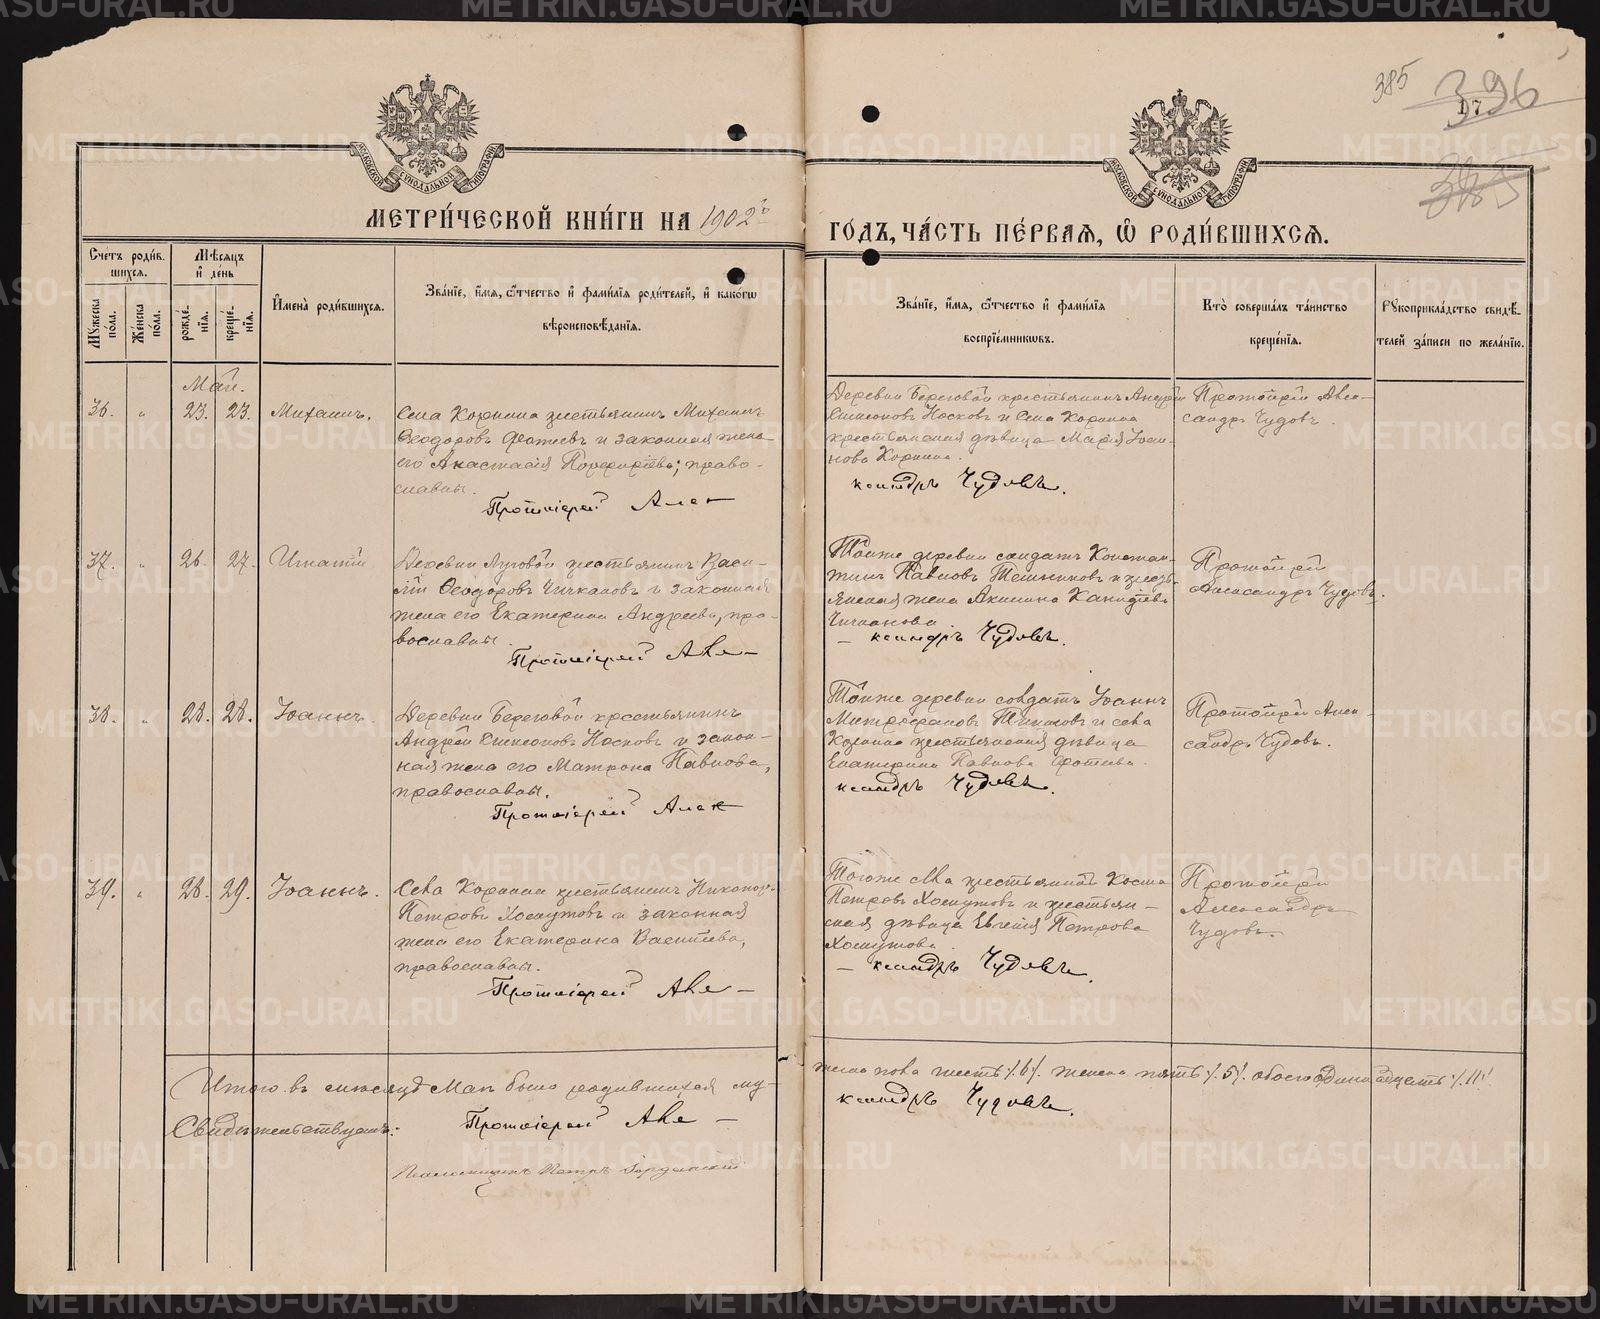 385
396
177
385
МОСКОВСКОЙ СѴНОДАЛЬНОЙ ТИПОГРАФІИ
МОСКОВСКОЙ СѴНОДАЛЬНОЙ ТИПОГРАФІИ
МЕТРИ́ЧЕСКОЙ КНИ́ГИ НА 1902й
ГОДЪ, ЧА́СТЬ ПЕ́РВАЯ, Ѡ РОДИ́ВШИХСЯ.
Счетъ роди́в
шихся.
Мѣ́сяцъ
и де́нь
Мꙋжеска по́ла.
Же́нска по́ла.
рожде́нїя.
креще́нїя.
И҆мена̀ роди́вшихся.
Зва́нїе, и҆́мя, ѻ҆́тчество и҆ фами́лїя роди́телей, и҆ како́гѡ
вѣроисповѣ́данїя.
Зва́нїе, и҆́мя, ѻ҆́тчество и҆ фами́лїя
воспрїе́мникѡвъ.
Кто̀ соверша́лъ та́инство
креще́нїя.
Рꙋкоприкла́дство свидѣ́-
телей за́писи по жела́нїю.
Май.
36. „ 23. 23. Михаилъ.
Села Коркина крестьянинъ Михаилъ
Ѳеодоровъ Фотіевъ и законная жена
его Анастасія Порфиріева; право-
славны.
Протоіерей Алек
Деревни Береговой крестьянинъ Андрей
Симеоновъ Носковъ и села Коркина
крестьянская дѣвица Марія Іоан-
нова Коркина.
ксандръ Чудовъ.
Протоіерей Алек-
сандръ Чудовъ.
37. „ 26. 27. Игнатій
Деревни Луговой крестьянинъ Васи-
лій Ѳеодоровъ Чичкановъ и законная
жена его Екатерина Андреева, пра-
вославны.
Протоіерей Але–
Той же деревни солдатъ Констан-
тинъ Павловъ и кресть-
янская жена Акилина
ксандръ Чудовъ.
Протоіерей
Александръ Чудовъ.
38. „ 28. 28. Іоаннъ.
Деревни Береговой крестьянинъ
Андрей Симеоновъ Носковъ и закон-
ная жена его Матрона Павлова,
православны.
Протоіерей Алек
Той же деревни солдатъ Іоаннъ
Митрофановъ и села
Коркина крестьянская дѣвица
Екатерина Павлова Фотіева.
ксандръ Чудовъ.
Протоіерей Алек-
сандръ Чудовъ.
39. „ 28. 29. Іоаннъ.
Села Коркина крестьянинъ Никаноръ
Петровъ Хомутовъ и законная
жена его Екатерина Васильева,
православны.
Протоіерей Але –
Того же села крестьянинъ Косма
Петровъ Хомутовъ и крестьян-
ская дѣвица Евгенія Петрова
Хомутова.
– ксандръ Чудовъ.
Протоіерей
Александръ
Чудовъ.
Итого въ мѣсяцѣ Маѣ было родившихся му-
жеска пола шесть /6/. женска пять /5/. обоего одинадцать /11/
Свидѣтельствуемъ:
Протоіерей Але –
ксандръ Чудовъ.
Псаломщикъ Петръ